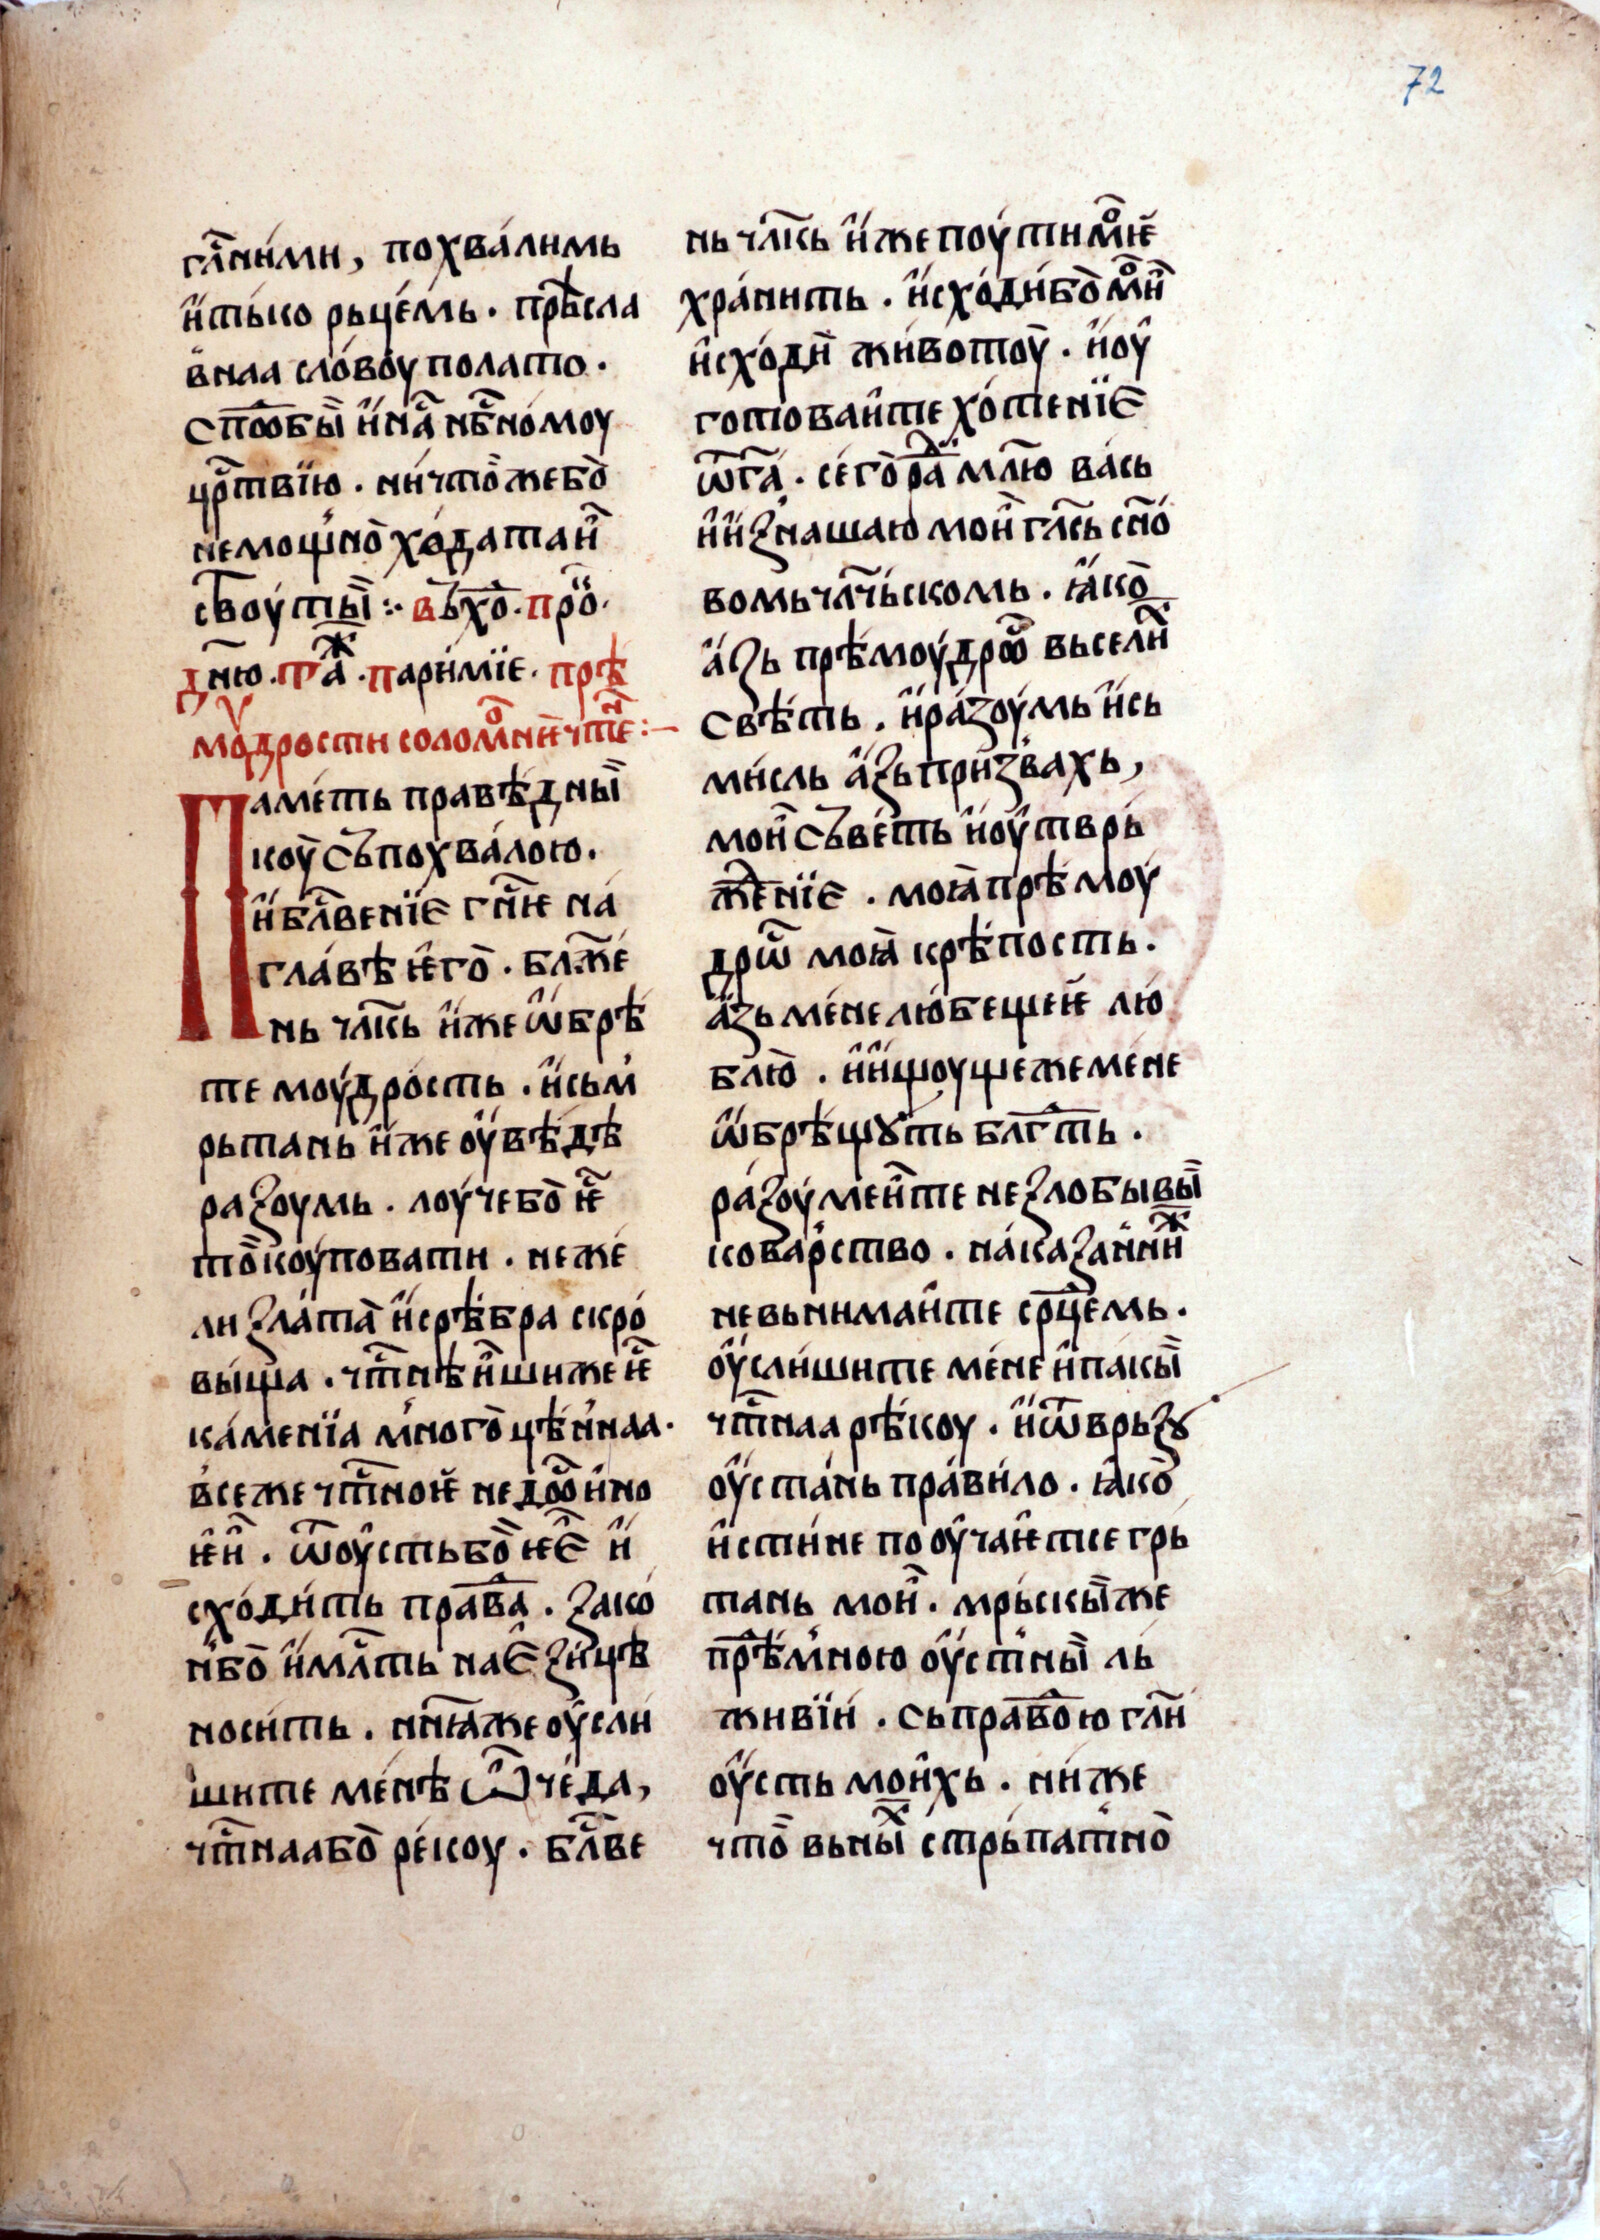 72
гл҃ними, похва́лимь
и҆ть́ко рьце́мь. прѣ́сла
в̾наа сло́воу полато.
спо̑обы̀ и҆ на́ нбⷭ҇но́моу
црⷭ҇твїю. ни́что̀же бо̀
немощ̾но̀ хо́дата и҆
своу ты̀ :· въхо̑. прⷪ҇.
дн҃ю. таⷤ. пари́мїе. прѣ
моу́дрости соломѡ́ни чте :-
Паме́ть праве́дны̀
коу̀ съпохва́лою.
и҆ блⷭ҇вениѥ гнⷭ҇ѥ на́
гла́вѣ ѥ҆го̀. бл҃же́
нь чл҃кь и҆же ѡ҆брѣ́
те моу́дро́сть. и҆сьм̾
рьтань и҆же оу҆вѣ́дѣ
разоумь. лоу́че бо̀ ѥⷭ҇
то̀ коуповати. неже́
ли зла́та̀ и҆ срѣ́бра скро́
вы́ща. чтⷭ҇нѣ и҆шиже ѥⷭ҇
ка́менїа м̾ного̀цѣ́н̾наа.
в̾сеже чтⷭ҇ноѥ недо́о́ино
ѥ҆и҆. ѿоу҆сть бо̀ ѥ҆Є҆ и҆
сходи́ть правⷣа. зако́
н̾бо̀ и҆ млⷭ҇ть на є҆зи́цѣ
носи́ть. нн҃ꙗже оу҆сли́
шите ме́нѣ ѽ че́да,
чтⷭ҇наа бо̀ ре́коу. блⷭ҇ве
нь чл҃кь и҆же поу́ти моѥ
хра́нить. и҆схо́ди́ бо̀ мои҆
и҆схо́ди животоу̀. и҆ оу҆
готоваи҆те хо́тенїє
ѿ га҃. се́го̀ раⷣ млю̀ ва́сь
и҆ и҆знашаю мои҆ гла́сь сн҃о́
вомь чл҃чьскомь. ꙗ҆ко̀
а҆зь прѣмоу́дроⷭ҇ вьселиⷯ
свѣ́ть. и҆ ра́зоу́мь и҆ сь
ми́сль а҆зь призвахь,
мои҆ съве́ть и҆ оу҆тврь
жⷣенїє. моꙗ̀ прѣмоу́
дрѡⷭ҇ моꙗ̀ крѣ́пость.
а҆зь ме́не лю́бещеѥ лю́
блю̀. и҆ и҆щоущеже ме́не
ѡ҆брѣщꙋть блгⷣть.
разоу́меи҆те незлобывы̀
коварство. на́казан̾ниⷤ
невьнимаи҆те срⷣцемь.
оу҆сли́шите ме́не и҆ пакы̀
чтⷭ҇наа рѣ́коу. и҆ ѿврьзꙋ
оу҆ста́нь пра́ви́ло. ꙗ҆ко̀
и҆сти́не пооу҆чаѥ҆тсе грь
тань мои҆. мрь́скы̀же
прѣ́дм̾ною оу҆ст̾ны̀ ль
живїи́. сьправⷣою гл҃и́
оу҆сть мои҆хь. ни́же
что̀ вьниⷯ стрьпат̾но̀